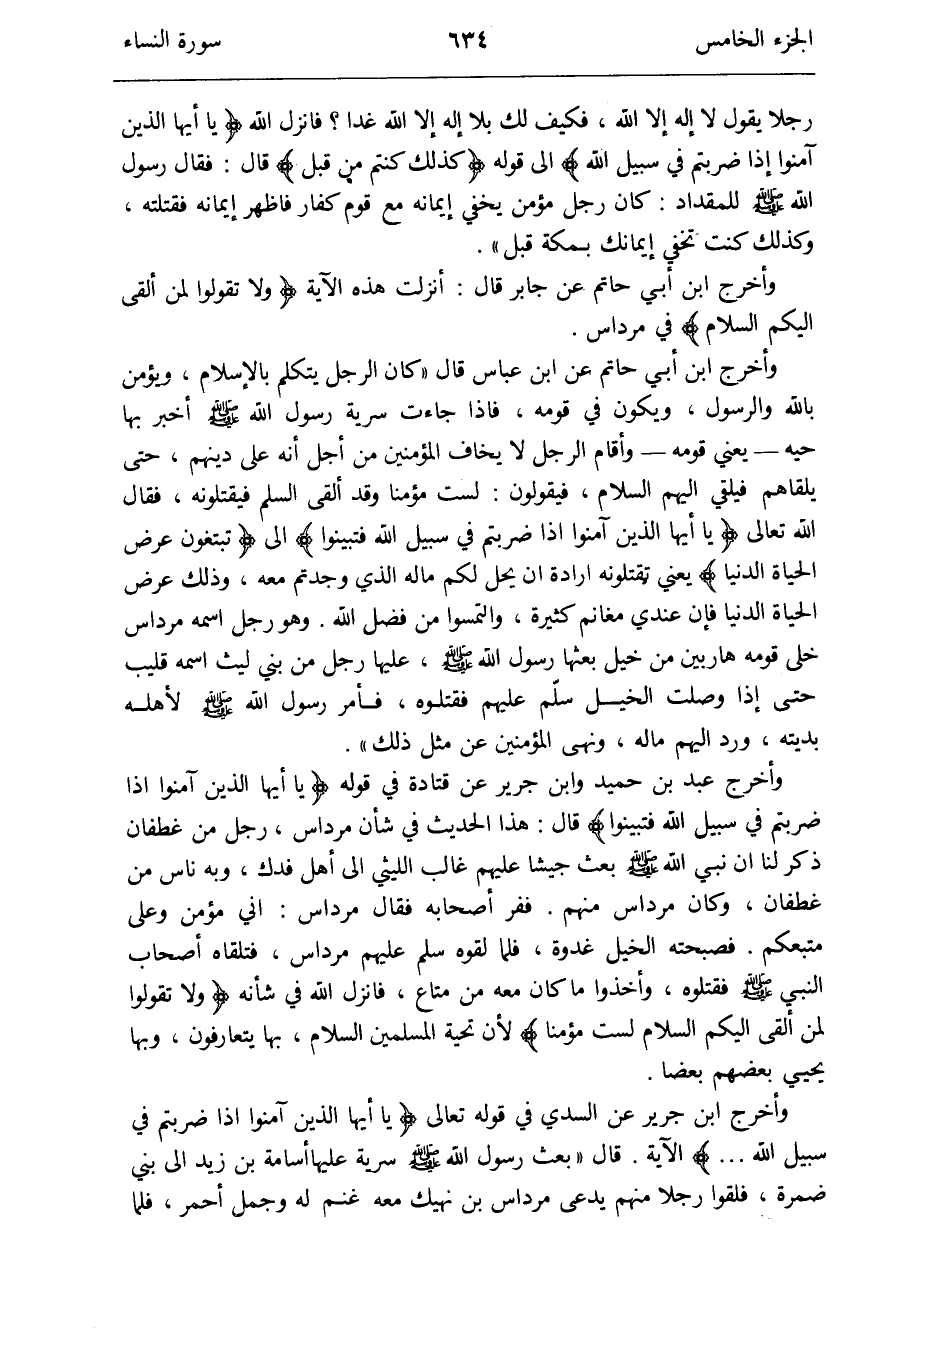 الجزء الخامس ٦٣٤ سورة النساء
رجلا يقول لا إله إلا الله ، فكيف لك بلا إله إلا الله غدا ؟ فانزل الله ﴿ يا أيها الذين
آمنوا إذا ضربتم في سبيل الله ﴾ الى قوله ﴿ كذلك كنتم من قبل ﴾ قال : فقال رسول
الله ﷺ للمقداد : كان رجل مؤمن يخفي إيمانه مع قوم كفار فاظهر إيمانه فقتلته ،
وكذلك كنت تخفي إيمانك بمكة قبل» .
وأخرج ابن أبي حاتم عن جابر قال : أنزلت هذه الآية ﴿ ولا تقولوا لمن ألقى
اليكم السلام ﴾ في مرداس .
وأخرج ابن أبي حاتم عن ابن عباس قال «كان الرجل يتكلم بالإسلام ، ويؤمن
بالله والرسول ، ويكون في قومه ، فاذا جاءت سرية رسول الله ﷺ أخبر بها
حيه — يعني قومه — وأقام الرجل لا يخاف المؤمنين من أجل أنه على دينهم ، حتى
يلقاهم فيلقي اليهم السلام ، فيقولون : لست مؤمنا وقد ألقى السلم فيقتلونه ، فقال
الله تعالى ﴿ يا أيها الذين آمنوا اذا ضربتم في سبيل الله فتبينوا ﴾ الى ﴿ تبتغون عرض
الحياة الدنيا ﴾ يعني تقتلونه ارادة ان يحل لكم ماله الذي وجدتم معه ، وذلك عرض
الحياة الدنيا فإن عندي مغانم كثيرة ، والتمسوا من فضل الله . وهو رجل اسمه مرداس
خلى قومه هاربين من خيل بعثها رسول الله ﷺ ، عليها رجل من بني ليث اسمه قليب
حتى إذا وصلت الخيل سلّم عليهم فقتلوه ، فأمر رسول الله ﷺ لأهله
بديته ، ورد اليهم ماله ، ونهى المؤمنين عن مثل ذلك» .
وأخرج عبد بن حميد وابن جرير عن قتادة في قوله ﴿ يا أيها الذين آمنوا اذا
ضربتم في سبيل الله فتبينوا ﴾ قال : هذا الحديث في شأن مرداس ، رجل من غطفان
ذكر لنا ان نبي الله ﷺ بعث جيشا عليهم غالب الليثي الى أهل فدك ، وبه ناس من
غطفان ، وكان مرداس منهم . ففر أصحابه فقال مرداس : اني مؤمن وعلى
متبعكم . فصبحته الخيل غدوة ، فلما لقوه سلم عليهم مرداس ، فتلقاه أصحاب
النبي ﷺ فقتلوه ، وأخذوا ما كان معه من متاع ، فانزل الله في شأنه ﴿ ولا تقولوا
لمن ألقى اليكم السلام لست مؤمنا ﴾ لأن تحية المسلمين السلام ، بها يتعارفون ، وبها
يحيي بعضهم بعضا .
وأخرج ابن جرير عن السدي في قوله تعالى ﴿ يا أيها الذين آمنوا اذا ضربتم في
سبيل الله ... ﴾ الآية . قال «بعث رسول الله ﷺ سرية عليها أسامة بن زيد الى بني
ضمرة ، فلقوا رجلا منهم يدعى مرداس بن نهيك معه غنم له وجمل أحمر ، فلما